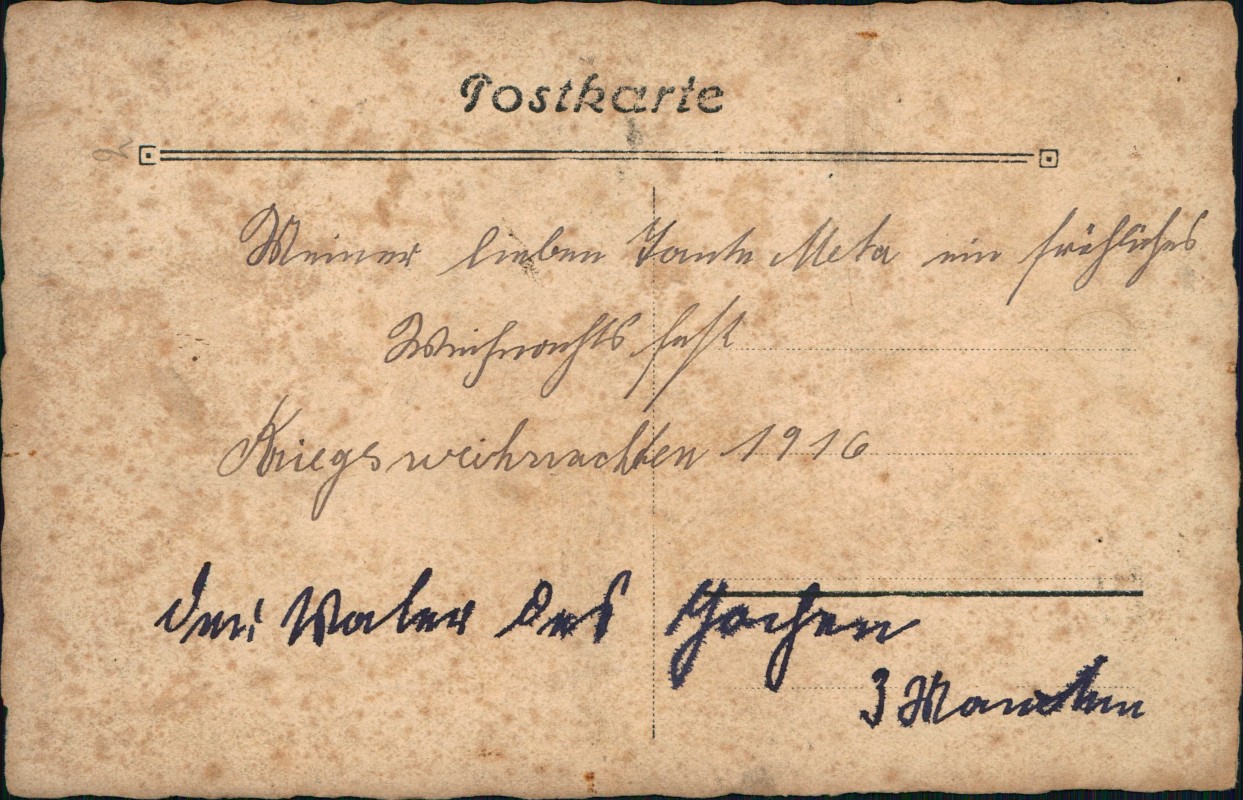 Postkarte
2
Meiner lieben Tante Meta ein fröhliches
Weihnachtsfest
Kriegsweihnachten 1916
der Vater des Jochen
3 Monaten